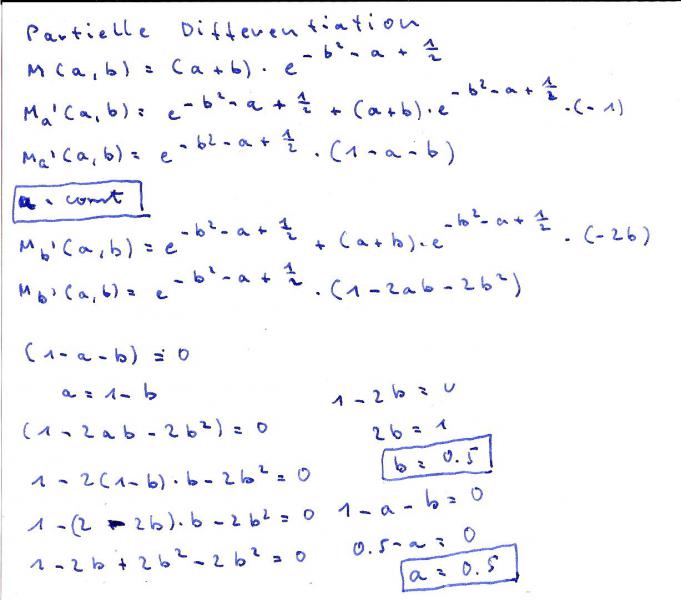 Partielle Differentiation
M(a,b) = (a+b) · e^(-b²-a+1/2)
Ma'(a,b) = e^(-b²-a+1/2) + (a+b)·e^(-b²-a+1/2) ·(-1)
Ma'(a,b) = e^(-b²-a+1/2) · (1-a-b)
a = const
Mb'(a,b) = e^(-b²-a+1/2) + (a+b)·e^(-b²-a+1/2) · (-2b)
Mb'(a,b) = e^(-b²-a+1/2) · (1-2ab-2b²)
(1-a-b) = 0
a = 1-b
(1-2ab-2b²) = 0
1-2(1-b)·b-2b² = 0
1-(2-2b)·b-2b² = 0
1-2b+2b²-2b² = 0
1-2b = 0
2b = 1
b = 0.5
1-a-b = 0
0.5-a = 0
a = 0.5